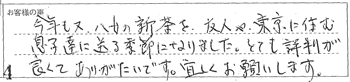 お客様の声
今年も又、八女の新茶を、友人や、東京に住む
息子達に送る季節になりました。とても評判が
良くてありがたいです。宜しくお願いします。